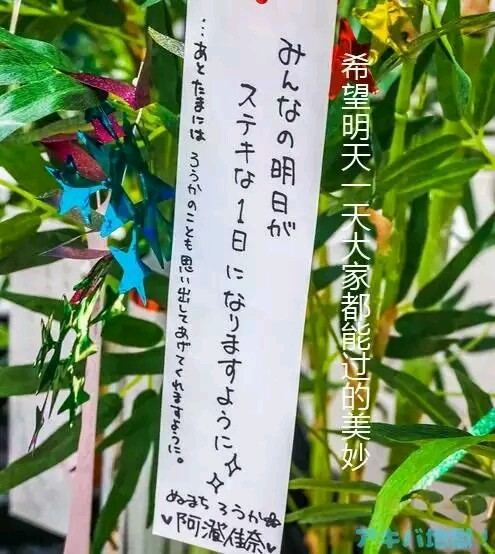 みんなの明日が
ステキな1日になりますように
…あとたまには ろうかのことも思い出してあげてくれますように。
ぬまち ろうか
♥阿澄佳奈♥
希望明天一天大家都能过的美妙
アキバ総研!